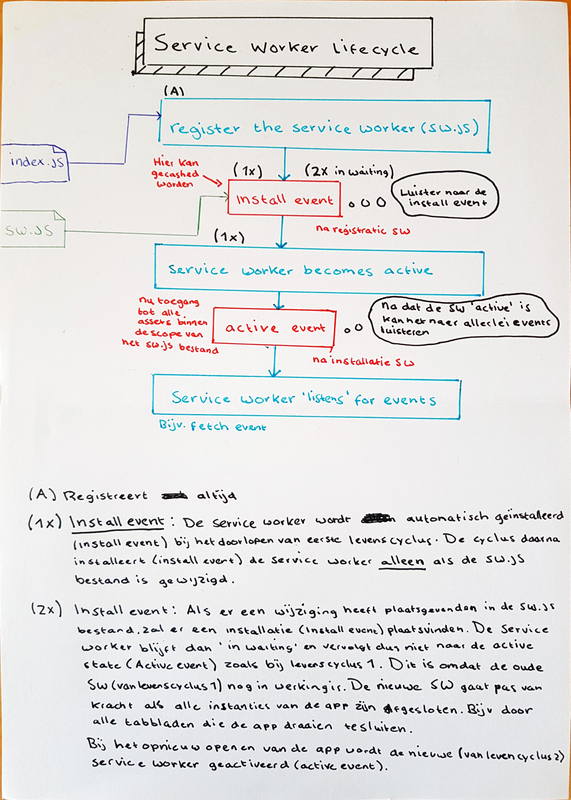 Service Worker Lifecycle
(A)
register the service worker (sw.js)
index.js
Hier kan
gecashed
worden
(1x)
(2x in waiting)
install event
Luister naar de
install event
sw.js
na registratie SW
(1x)
Service worker becomes active
nu toegang
tot alle
assets binnen
de scope van
het sw.js bestand
active event
na dat de SW 'active' is
kan her naar allerlei events
luisteren
na installatie SW
Service worker 'listens' for events
Bijv. fetch event
(A) Registreert altijd
(1x) Install event: De service worker wordt automatisch geïnstalleerd
(install event) bij het doorlopen van eerste levenscyclus. De cyclus daarna
installeert (install event) de service worker alleen als de sw.js
bestand is gewijzigd.
(2x) Install event: Als er een wijziging heeft plaatsgevenden in de sw.js
bestand, zal er een installatie (install event) plaatsvinden. De Service
worker blijft dan 'in waiting' en vervolgt dus niet naar de active
state (Active event) zoals bij levenscyclus 1. Dit is omdat de oude
SW (van levenscyclus 1) nog in werking is. De nieuwe SW gaat pas van
kracht als alle instanties van de app zijn afgesloten. Bijv door
alle tabbladen die de app draaien te sluiten.
Bij het opnieuw openen van de app wordt de nieuwe (van levencyclus 2)
service worker geactiveerd (active event).